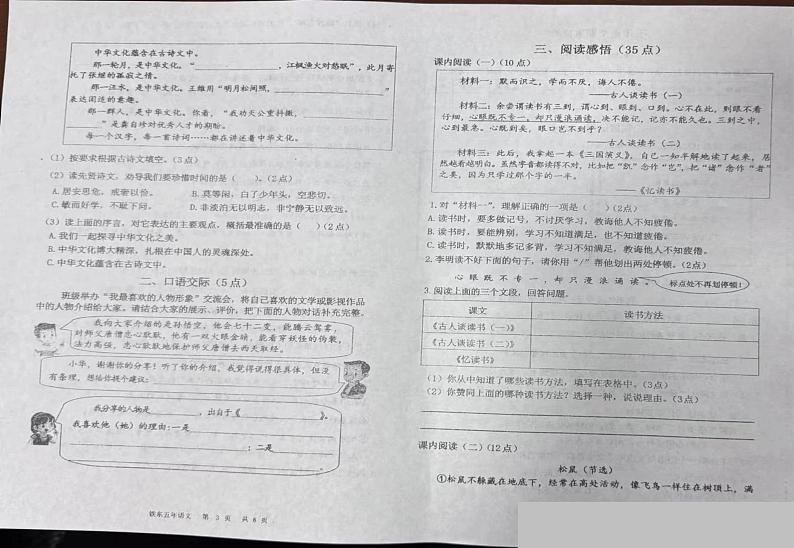 中华文化蕴含在古诗文中。
那一轮月，是中华文化。“________，江枫渔火对愁眠”，此月寄
托了张继的孤寂之情。
那一泓水，是中华文化。王维用“明月松间照，________”
表达闲适的意趣。
那一群人，是中华文化。你看，“我劝天公重抖擞，________
________”是龚自珍对优秀人才的期盼。
每一个汉字，每一首诗词……都在讲述着中华文化。
（1）按要求根据古诗文填空。（3点）
（2）读先贤诗文，劝导我们要珍惜时间的是（ ）。（2点）
A. 居安思危，戒奢以俭。 B. 莫等闲，白了少年头，空悲切。
C. 敏而好学，不耻下问。 D. 非淡泊无以明志，非宁静无以致远。
（3）读上面的序言，对它表达的主要观点，概括最准确的是（ ）（2点）
A. 我们一起探寻中华文化之美。
B. 中华文化博大精深，扎根在中国人的灵魂深处。
C. 中华文化蕴含在古诗文中。
二、口语交际（5点）
班级举办“我最喜欢的人物形象”交流会，将自己喜欢的文学或影视作品
中的人物介绍给大家。请结合大家的展示、评价，把下面的人物对话补充完整。
我向大家介绍的是孙悟空，他会七十二变，能腾云驾雾，
对师父唐僧忠心耿耿，他有一双火眼金睛，能看穿妖怪的伪装，
法力高强，忠心耿耿地保护师父唐僧去西天取经。
小华，谢谢你的分享！听了你的介绍，我觉得说得很具体，但没
有条理，想给你提个建议：________
我分享的人物是________，出自于《________》。
我喜欢他（她）的理由：一是________
________；二是________
铁东五年语文 第 3 页 共 6 页
三、阅读感悟（35点）
课内阅读（一）（10点）
材料一：默而识之，学而不厌，诲人不倦。
——古人谈读书（一）
材料二：余尝谓读书有三到，谓心到、眼到、口到。心不在此，则眼不看
仔细，心眼既不专一，却只漫浪诵读，决不能记，记亦不能久也。三到之中，
心到最急。心既到矣，眼口岂不到乎？
——古人谈读书（二）
材料三：此后，我拿起一本《三国演义》，自己一知半解地读了起来，居
然越看越明白。虽然字音都读得不对，比如把“凯”念作“岂”，把“诸”念作“者”
之类，因为只学过那个字的一半。
——《忆读书》
1. 对“材料一”，理解正确的一项是（ ）（2点）
A. 读书时，要多做记号，不讨厌学习，教诲他人不知疲倦。
B. 读书时，要能辨别，学习不知道满足，也不知道疲倦。
C. 读书时，默默地多记多背，学习不知满足，教诲他人不知疲倦。
2. 李明读不好下面的句子，请你用“/”帮他划出两处停顿。（2点）
心 眼 既 不 专 一 ， 却 只 漫 浪 诵 读 。
标点处不再划停顿！
3. 阅读上面的三个文段，回答问题。
课文 读书方法
《古人谈读书（一）》
《古人谈读书（二）》
《忆读书》
（1）你从中知道了哪些读书方法，填写在表格中。（3点）
（2）你赞同上面的哪种读书方法？选择一种，说说理由。（3点）
课内阅读（二）（12点）
松鼠（节选）
①松鼠不躲藏在地底下，经常在高处活动，像飞鸟一样住在树顶上，满